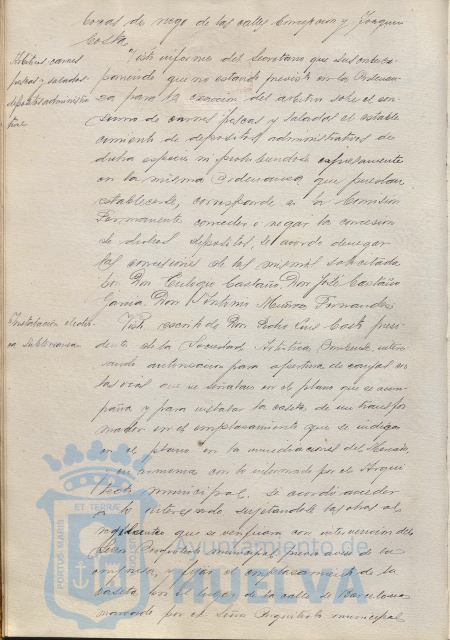 bocas de riego de las calles Concepcion y Joaquin
Costa.
Arbitrio carnes
pescas y saladas
depositos administra
tivos
Visto informe del Secretario que suscribe ex
poniendo que no estando previsto en la Ordenan
za para la exaccion del arbitrio sobre el con
sumo de carnes frescas y saladas el estable
cimiento de depositos administrativos de
dicha especie ni prohibiendose expresamente
en la misma Ordenanza que puedan
establecerse, corresponde a la Comision
Permanente conceder o negar la concesion
de dichos depositos, se acordo denegar
las concesiones de los mismos solicitada
por Don Eulogio Castaño, Don José Castaño
Garcia, Don Antonio Muñoz Fernandez.
Instalacion electri
ca subterranea
Visto escrito de Don Pedro Luis Costi presi
dente de la Sociedad intere
sando autorizacion para apertura de zanjas en
las vias que se señalan en el plano que se acom
paña y para instalar la caseta de un transfor
mador en el emplazamiento que se indica
en el plano en las inmediaciones del Mercado,
en armonia con lo informado por el Arqui
tecto municipal, se acordó acceder
a lo interesado sujetandole las obras al
que se verifiquen con intervencion del
Señor Arquitecto municipal previo aviso de su
comienzo y fijar el emplazamiento de la
caseta por el lugar de la calle de Barcelona
marcado por el Señor Arquitecto municipal
PORTUS MARIS ET TERRAE CUSTODIA
Ayuntamiento de
HUELVA